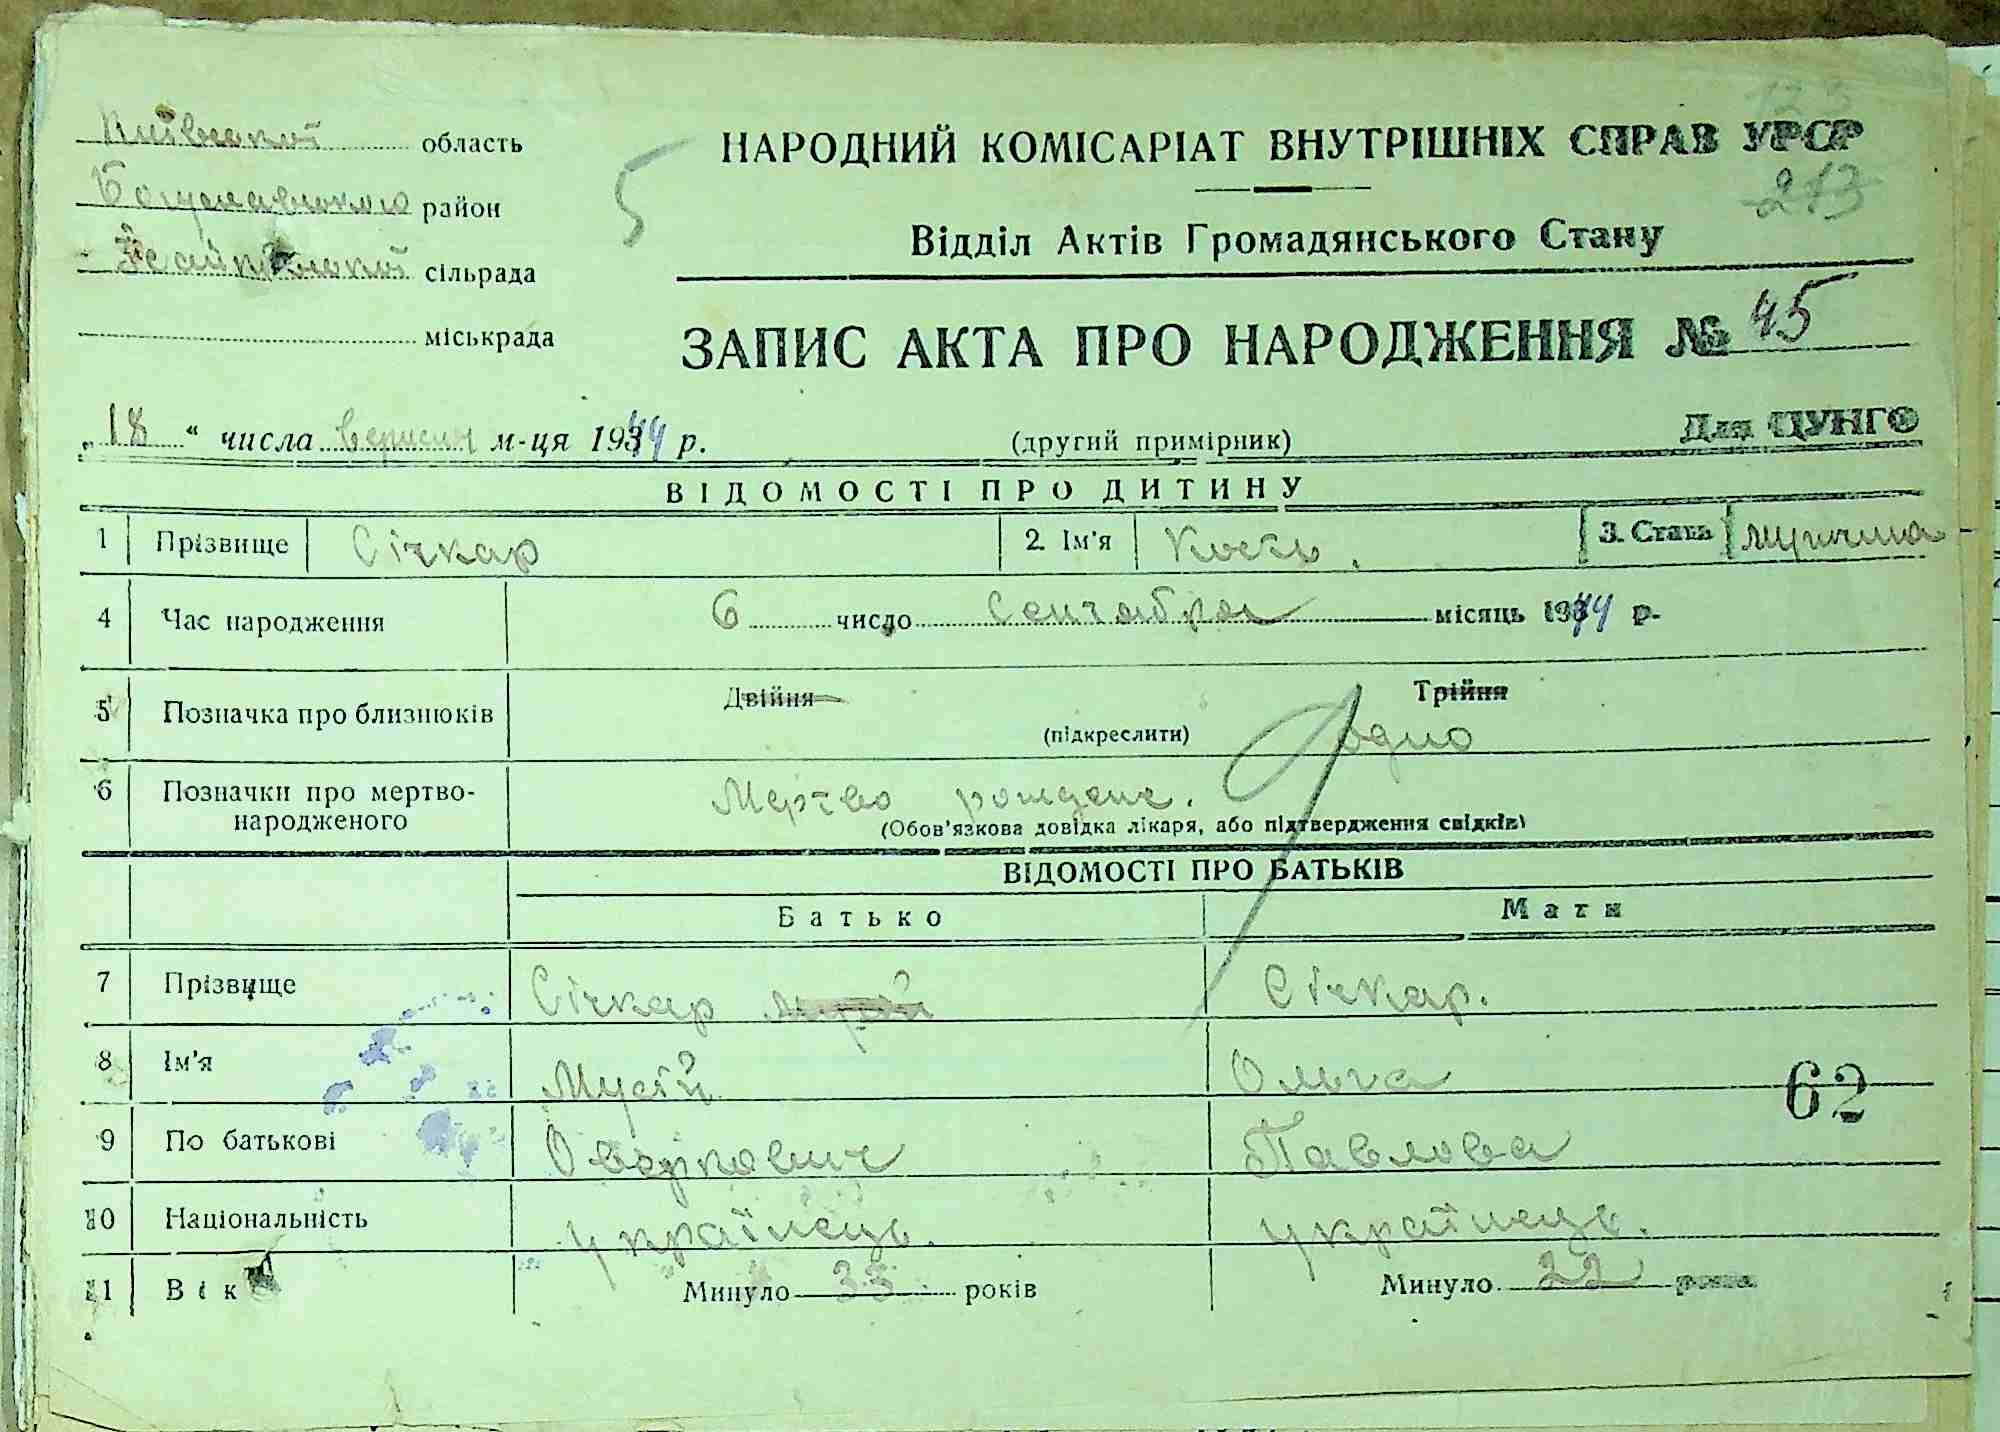 Київської область
Богуславського район
сільрада
міськрада
5
НАРОДНИЙ КОМІСАРІАТ ВНУТРІШНІХ СПРАВ УРСР
213
Відділ Актів Громадянського Стану
ЗАПИС АКТА ПРО НАРОДЖЕННЯ № 45
„18“ числа вересня м-ця 1944 р.
(другий примірник)
Для ЦУНГО
ВІДОМОСТІ ПРО ДИТИНУ
1 Прізвище Січкар 2. Ім'я 3. Стать мужчина
4 Час народження 6 число Сентября місяць 1944 р.
5 Позначка про близнюків Двійня Трійня
(підкреслити) одно
6 Позначки про мертво-народженого Мертво рождене.
(Обов'язкова довідка лікаря, або підтвердження свідків)
ВІДОМОСТІ ПРО БАТЬКІВ
Батько Мати
7 Прізвище Січкар Січкар.
8 Ім'я Мусій Ольга
62
9 По батькові Павлова
10 Національність українець. українець.
11 Вік Минуло 33 років Минуло 22 років